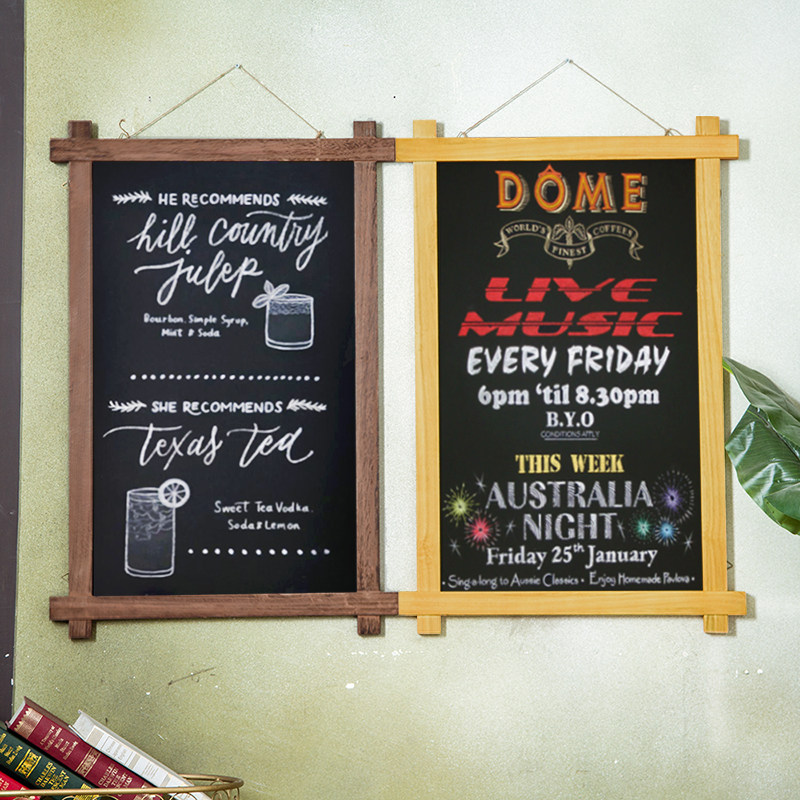 HE RECOMMENDS
hill country
julep
Bourbon. Simple Syrup,
Mint & Soda
SHE RECOMMENDS
Texas Tea
Sweet Tea Vodka.
Soda & Lemon
DÔME
WORLD'S FINEST COFFEES
LIVE
MUSIC
EVERY FRIDAY
6pm 'til 8.30pm
B.Y.O
CONDITIONS APPLY
THIS WEEK
AUSTRALIA
NIGHT
Friday 25th January
• Sing-a-long to Aussie Classics • Enjoy Homemade Pavlova •